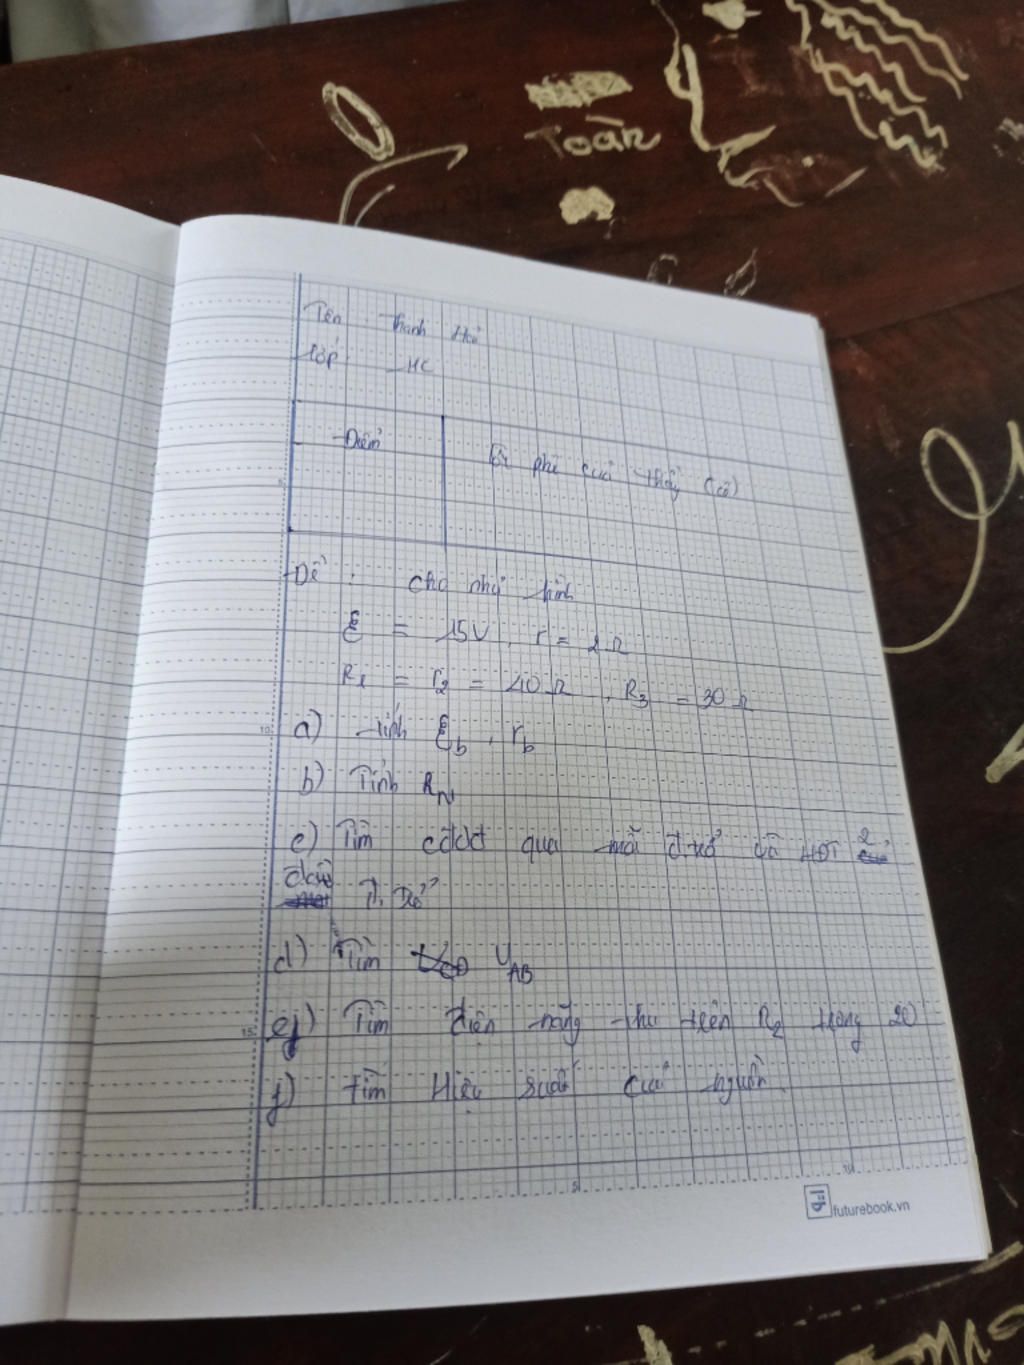 Toán
Tên Thanh
Lớp HC
Điểm
Lời phê của thầy (cô)
Đề : cho như hình
ξ = 15V, r = 2Ω
R1 = r2 = 40Ω, R3 = 30Ω
a) tính ξb, rb
b) Tính RN
c) Tìm cđdđ qua mỗi đ.trở và HĐT 2
đầu đ. trở
d) Tìm UAB
e) Tìm điện năng thu trên R2 trong 20
f) tìm Hiệu suất của nguồn.
5
10
15
5
10
futurebook.vn